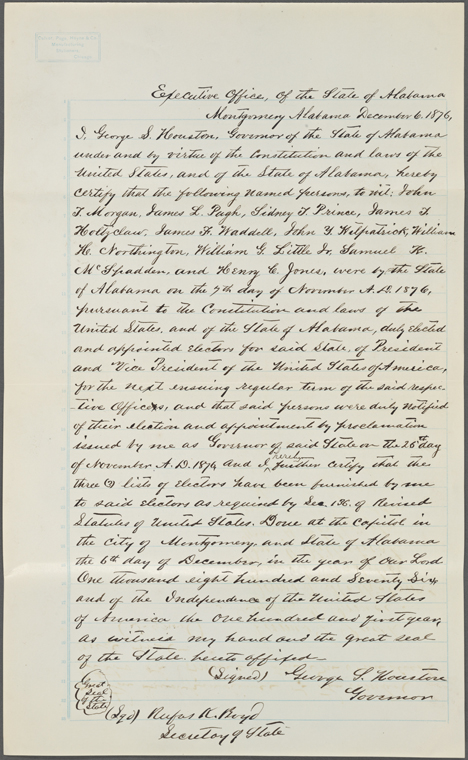 Executive Office, Of the State of Alabama
Montgomery Alabama December 6, 1876,
I, George S. Houston, Governor of the State of Alabama
under and by virtue of the Constitution and laws of the
United States, and of the State of Alabama, hereby
certify that the following named persons, to wit: John
T. Morgan, James L. Pugh, Sidney T. Prince, James T.
Holtzclaw, James F. Waddell, John Y. Kilpatrick, William
H. Northington, William G. Little Jr, Samuel K.
McSpadden, and Henry C. Jones, were by the State
of Alabama on the 7th day of November A.D. 1876,
pursuant to the Constitution and laws of the
United States, and of the State of Alabama, duly elected
and appointed Electors for said State, of President
and Vice President of the United States of America,
for the next ensuing regular term of the said respec-
tive Offices, and that said persons were duly notified
of their election and appointment by proclamation
issued by me as Governor of said State on the 25th day
of November A.D. 1876, and I further certify that the
three (3) lists of Electors have been furnished by me
to said Electors as required by Sec. 136, of Revised
Statutes of United States. Done at the Capitol in
the City of Montgomery, and State of Alabama
the 6th day of December, in the year of our Lord
One thousand eight hundred and Seventy Six,
and of the Independence of the United States
of America the one hundred and first year,
as witness my hand and the great seal
of the State hereto affixed—
(Signed) George S. Houston
Governor
Great
Seal
of the
State
(Sgd) Rufus K. Boyd
Secretary of State